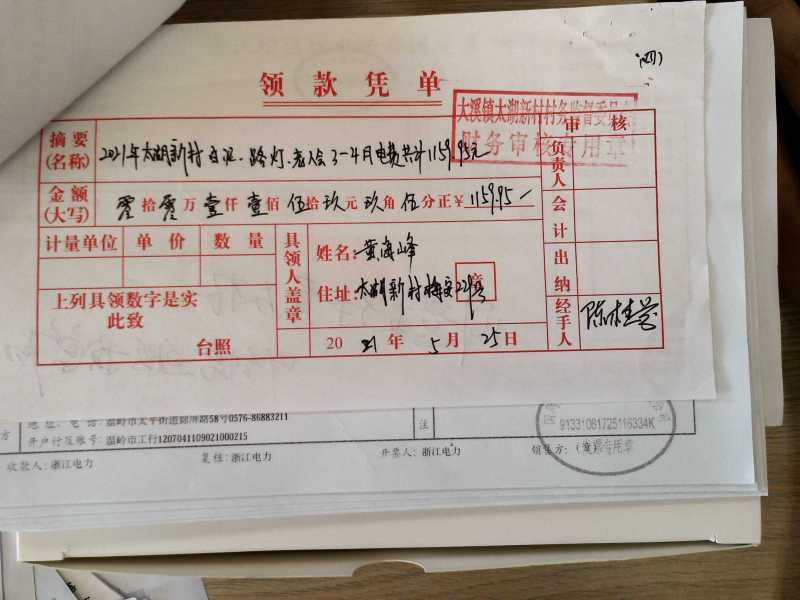 (四)
领款凭单
大溪镇太湖新村村务监督委员会
财务审核专用章
摘要(名称) 2021年太湖新村 路灯.老人会3-4月电费共计1159.95元
审核
负责人
金额(大写) 零拾零万壹仟壹佰伍拾玖元玖角伍分正¥ 1159.95
会计
计量单位 单价 数量
具领人盖章
姓名: 黄海峰
住址: 太湖新村 229号
章
出纳
上列具领数字是实
此致
台照
2021年5月25日
经手人 陈桂
地址、电话: 温岭市太平街道锦屏路58号0576-86883211
方 开户行及账号: 温岭市工行1207041109021000215
注
91331081725116334K
收款人: 浙江电力 复核: 浙江电力 开票人: 浙江电力 销售方: (章)
发票专用章